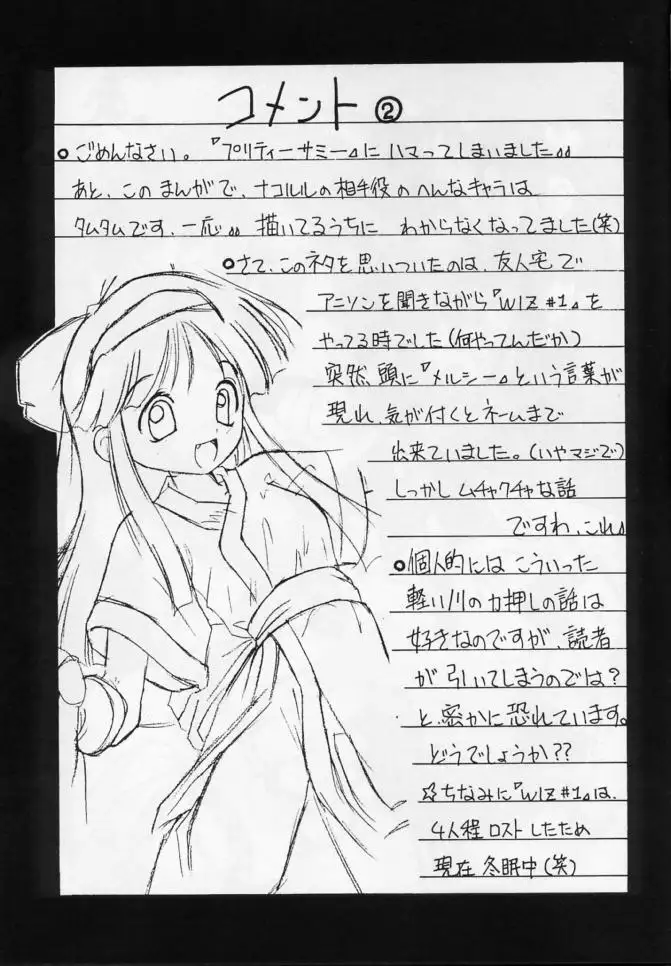 コメント②
○ごめんなさい。『プリティーサミー』に ハマってしまいました。。
あと、このまんがで、ナコルルの相手役のへんなキャラは
タムタムです、一応。。描いてるうちに わからなくなってました(笑)
○さて、このネタを思いついたのは、友人宅で
アニソンを聞きながら『WIZ #1』を
やってる時でした(何やってんだか)
突然、頭に『メルシー』という言葉が
現れ、気が付くとネームまで
出来ていました。(いやマジで)
しっかしムチャクチャな話
ですわ、これ。
○個人的には こういった
軽いノリの力押しの話は
好きなのですが、読者
が引いてしまうのでは?
と、密かに恐れています。
どうでしょうか??
☆ちなみに『WIZ #1』は、
4人程ロストしたため
現在冬眠中(笑)